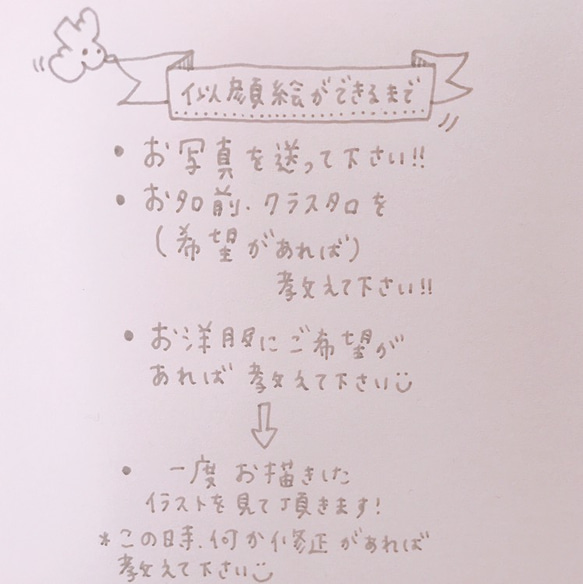 似顔絵ができるまで
• お写真を送って下さい!!
• お名前、クラス名を
(希望があれば)
教えて下さい!!
• お洋服にご希望が
あれば 教えて下さい
• 一度 お描きした
イラストを見て頂きます!
*この時、何か修正があれば
教えて下さい